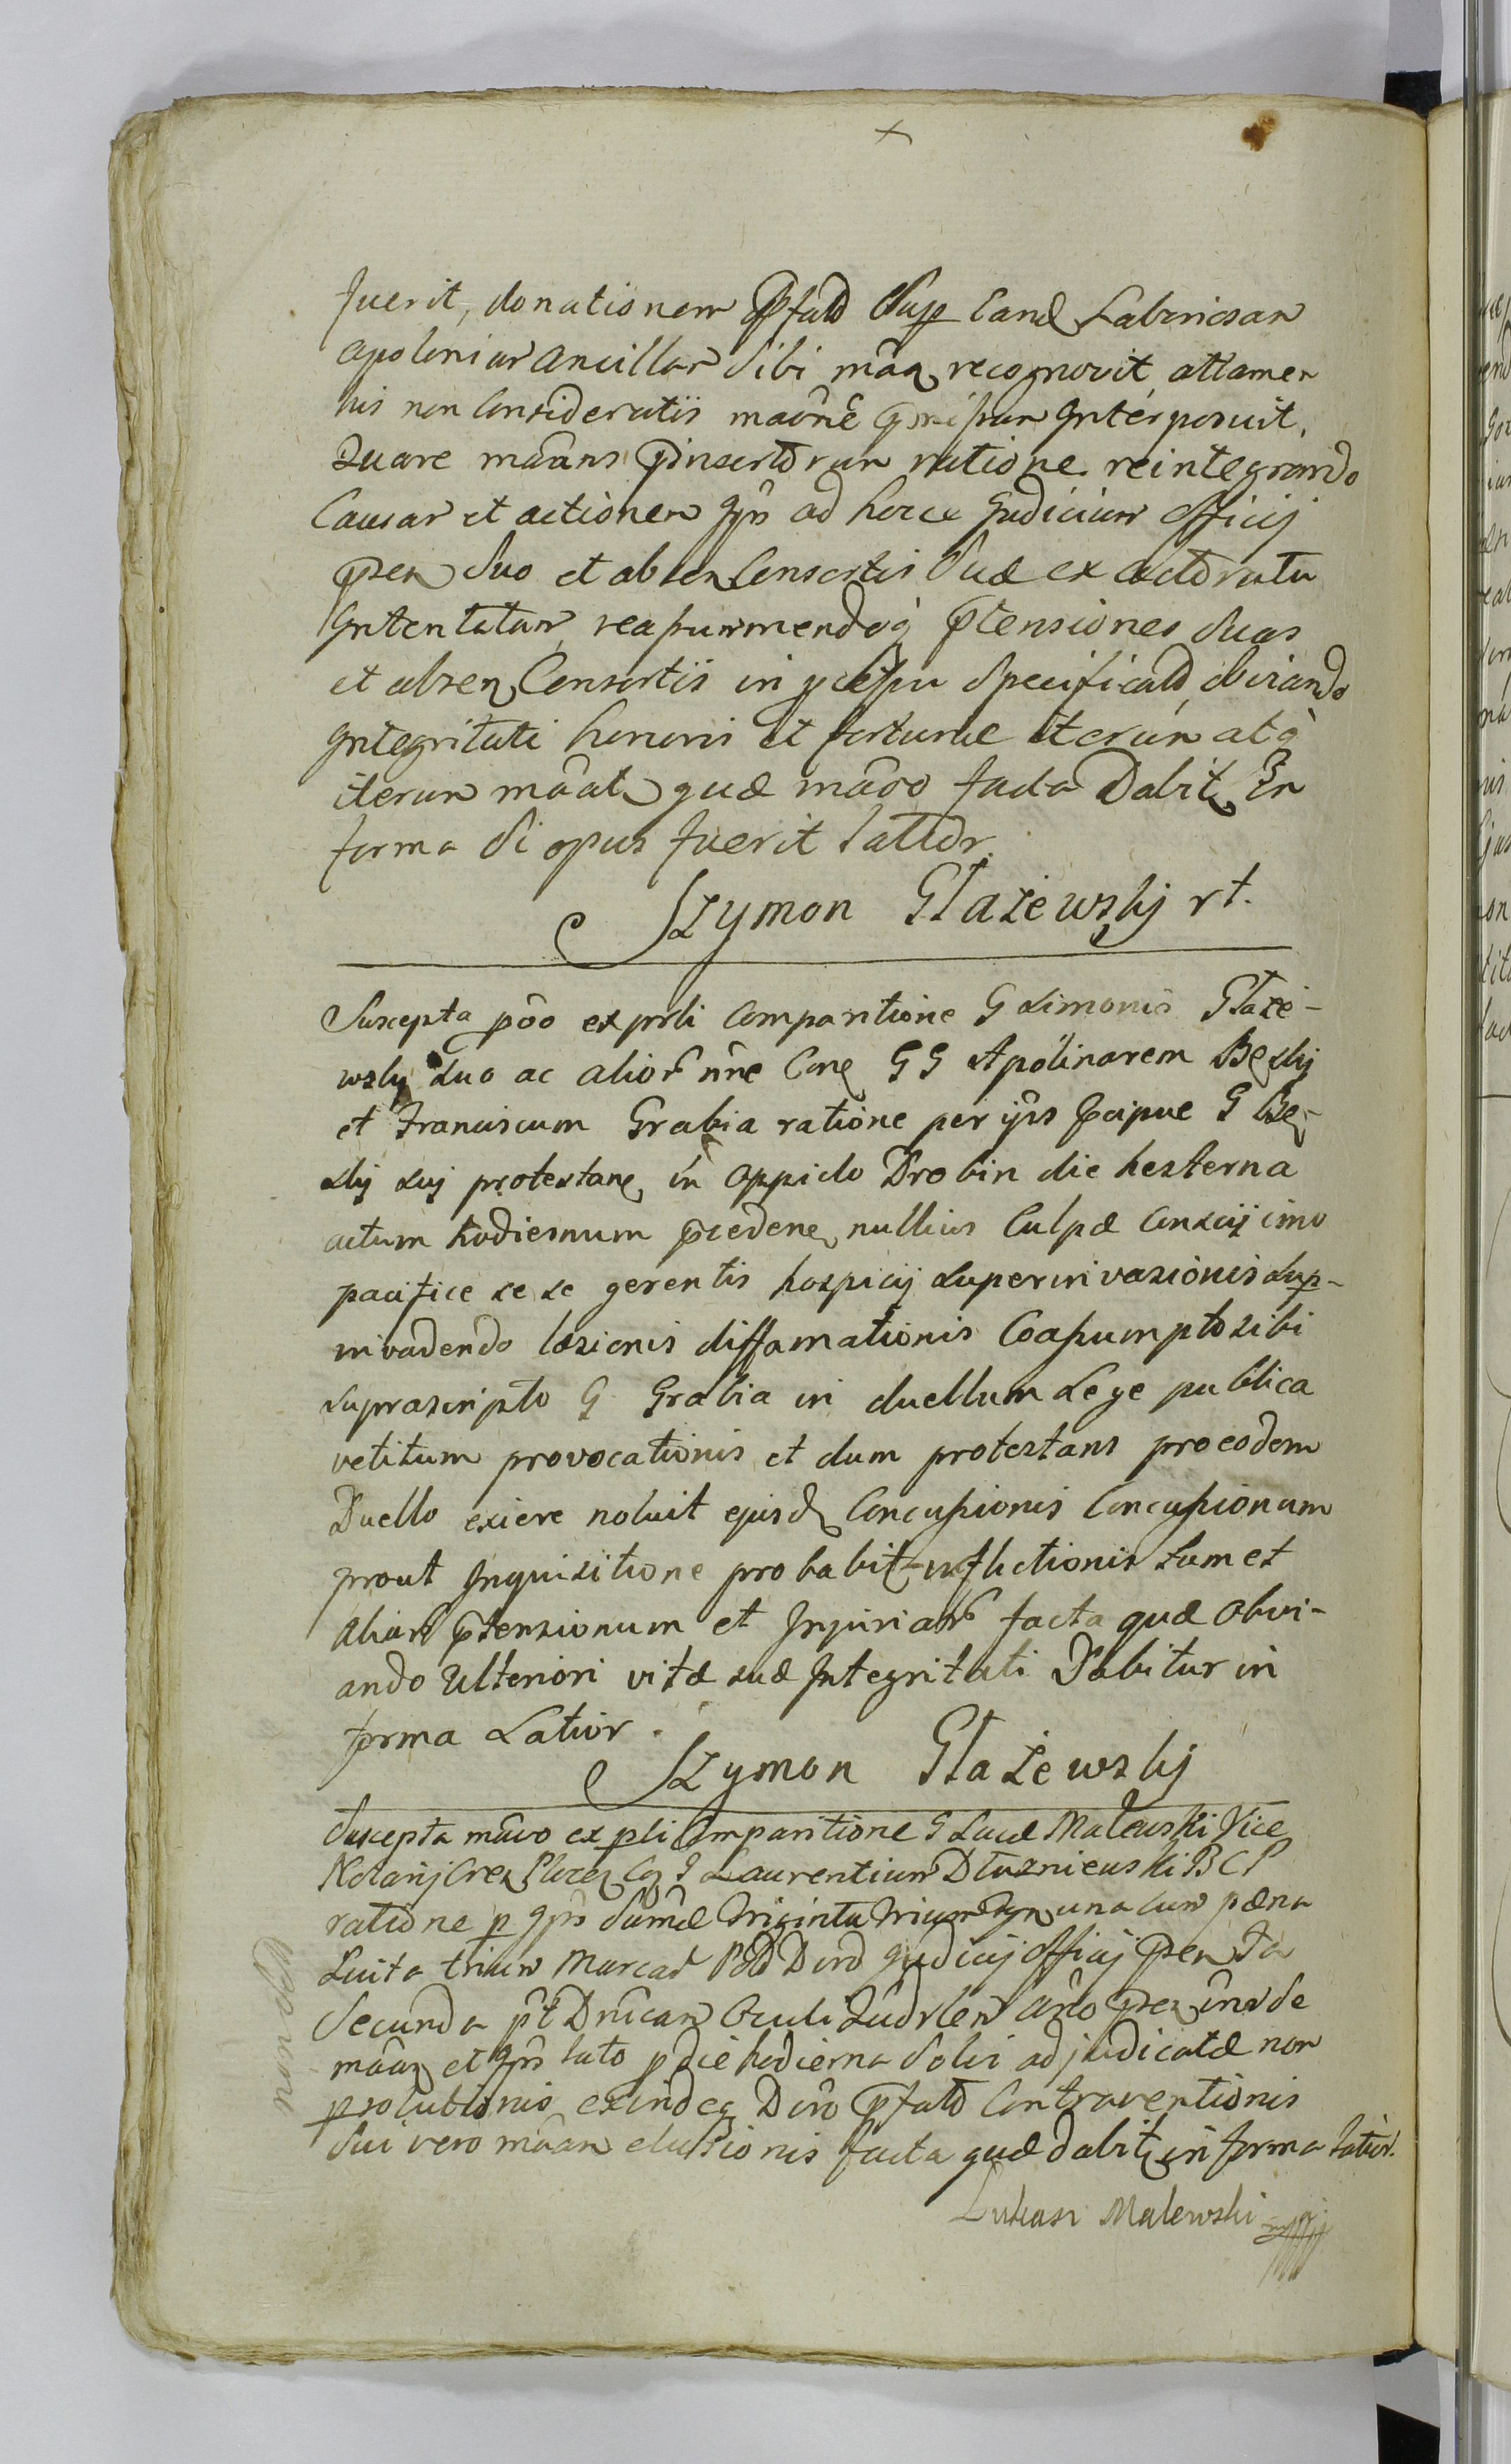 fuerit, donationem p̃fatõ Sup Cand Laboriosam
Apoloniam Ancillam Sibi mãn recognovit attamen
his non Consideratiis mãone Interposuit.
Quare mãans p̃insertorum ratione reintegrando
Causam et actionem Ips ad hocce Judicium Officij
p̃sen Suo et absen Consortis Suæ ex actoratu
Intentatam reassummendoq p̃tensiones Suas
et absen Consortis in specificatõ obviando
Integritati honoris et fortunæ iterum atq
iterum mãat quæ mãoo facta Dabit In
forma Si opus fuerit latior.
Szymon Głażewskj rt.
Suscepta põo ex prsli Comparitione G Simonis Głaże-
wskj Suo ac alior nne Cone GG Apolinarem Beskj
et Franciscum Grabia ratione per ips pcipue G Be-
skj suj protestane in oppido Drobin die hesterna
actum hodiernum p̃cedene nullius Culpæ Conscij imo
pacifice se se gerentis hospicij superinvasionis sup-
invadendo læsionis diffamationis Coassumpto sibi
suprascripto G Grabia in duellum Lege publica
vetitum provocationis et dum protestans pro eodem
Duello exiere noluit ejusd Concussionis Concussionum
prout Inquisitione probabit inflictionis tum et
Aliar p̃tensionum et Injuriar facta quæ obvi-
ando Ulteriori vitæ suæ Integritati Dabitur in
forma Latior.
Szymon Głażewskj
Suscepta mãvo ex psli Comparitione G Lucæ Malewski Vice
Notarij Cres Plocen Con G Laurentium Dłuzniewski B C P
ratione p Ips Summæ Triginta Trium una cum pæna
Luita trium Marcar Pol Decrõ Judicij Officij p̃sen
Secunda pt Dnicam Oculi Anõ p̃sen
mãan et Ips lato p die hodierna Solvi adjudicatæ non
psolutionis exindeq Decrõ p̃fatõ Contraventionis
Sui vero mãan elusionis facta quæ dabit in forma latior.
Łukasz Malewski mpp